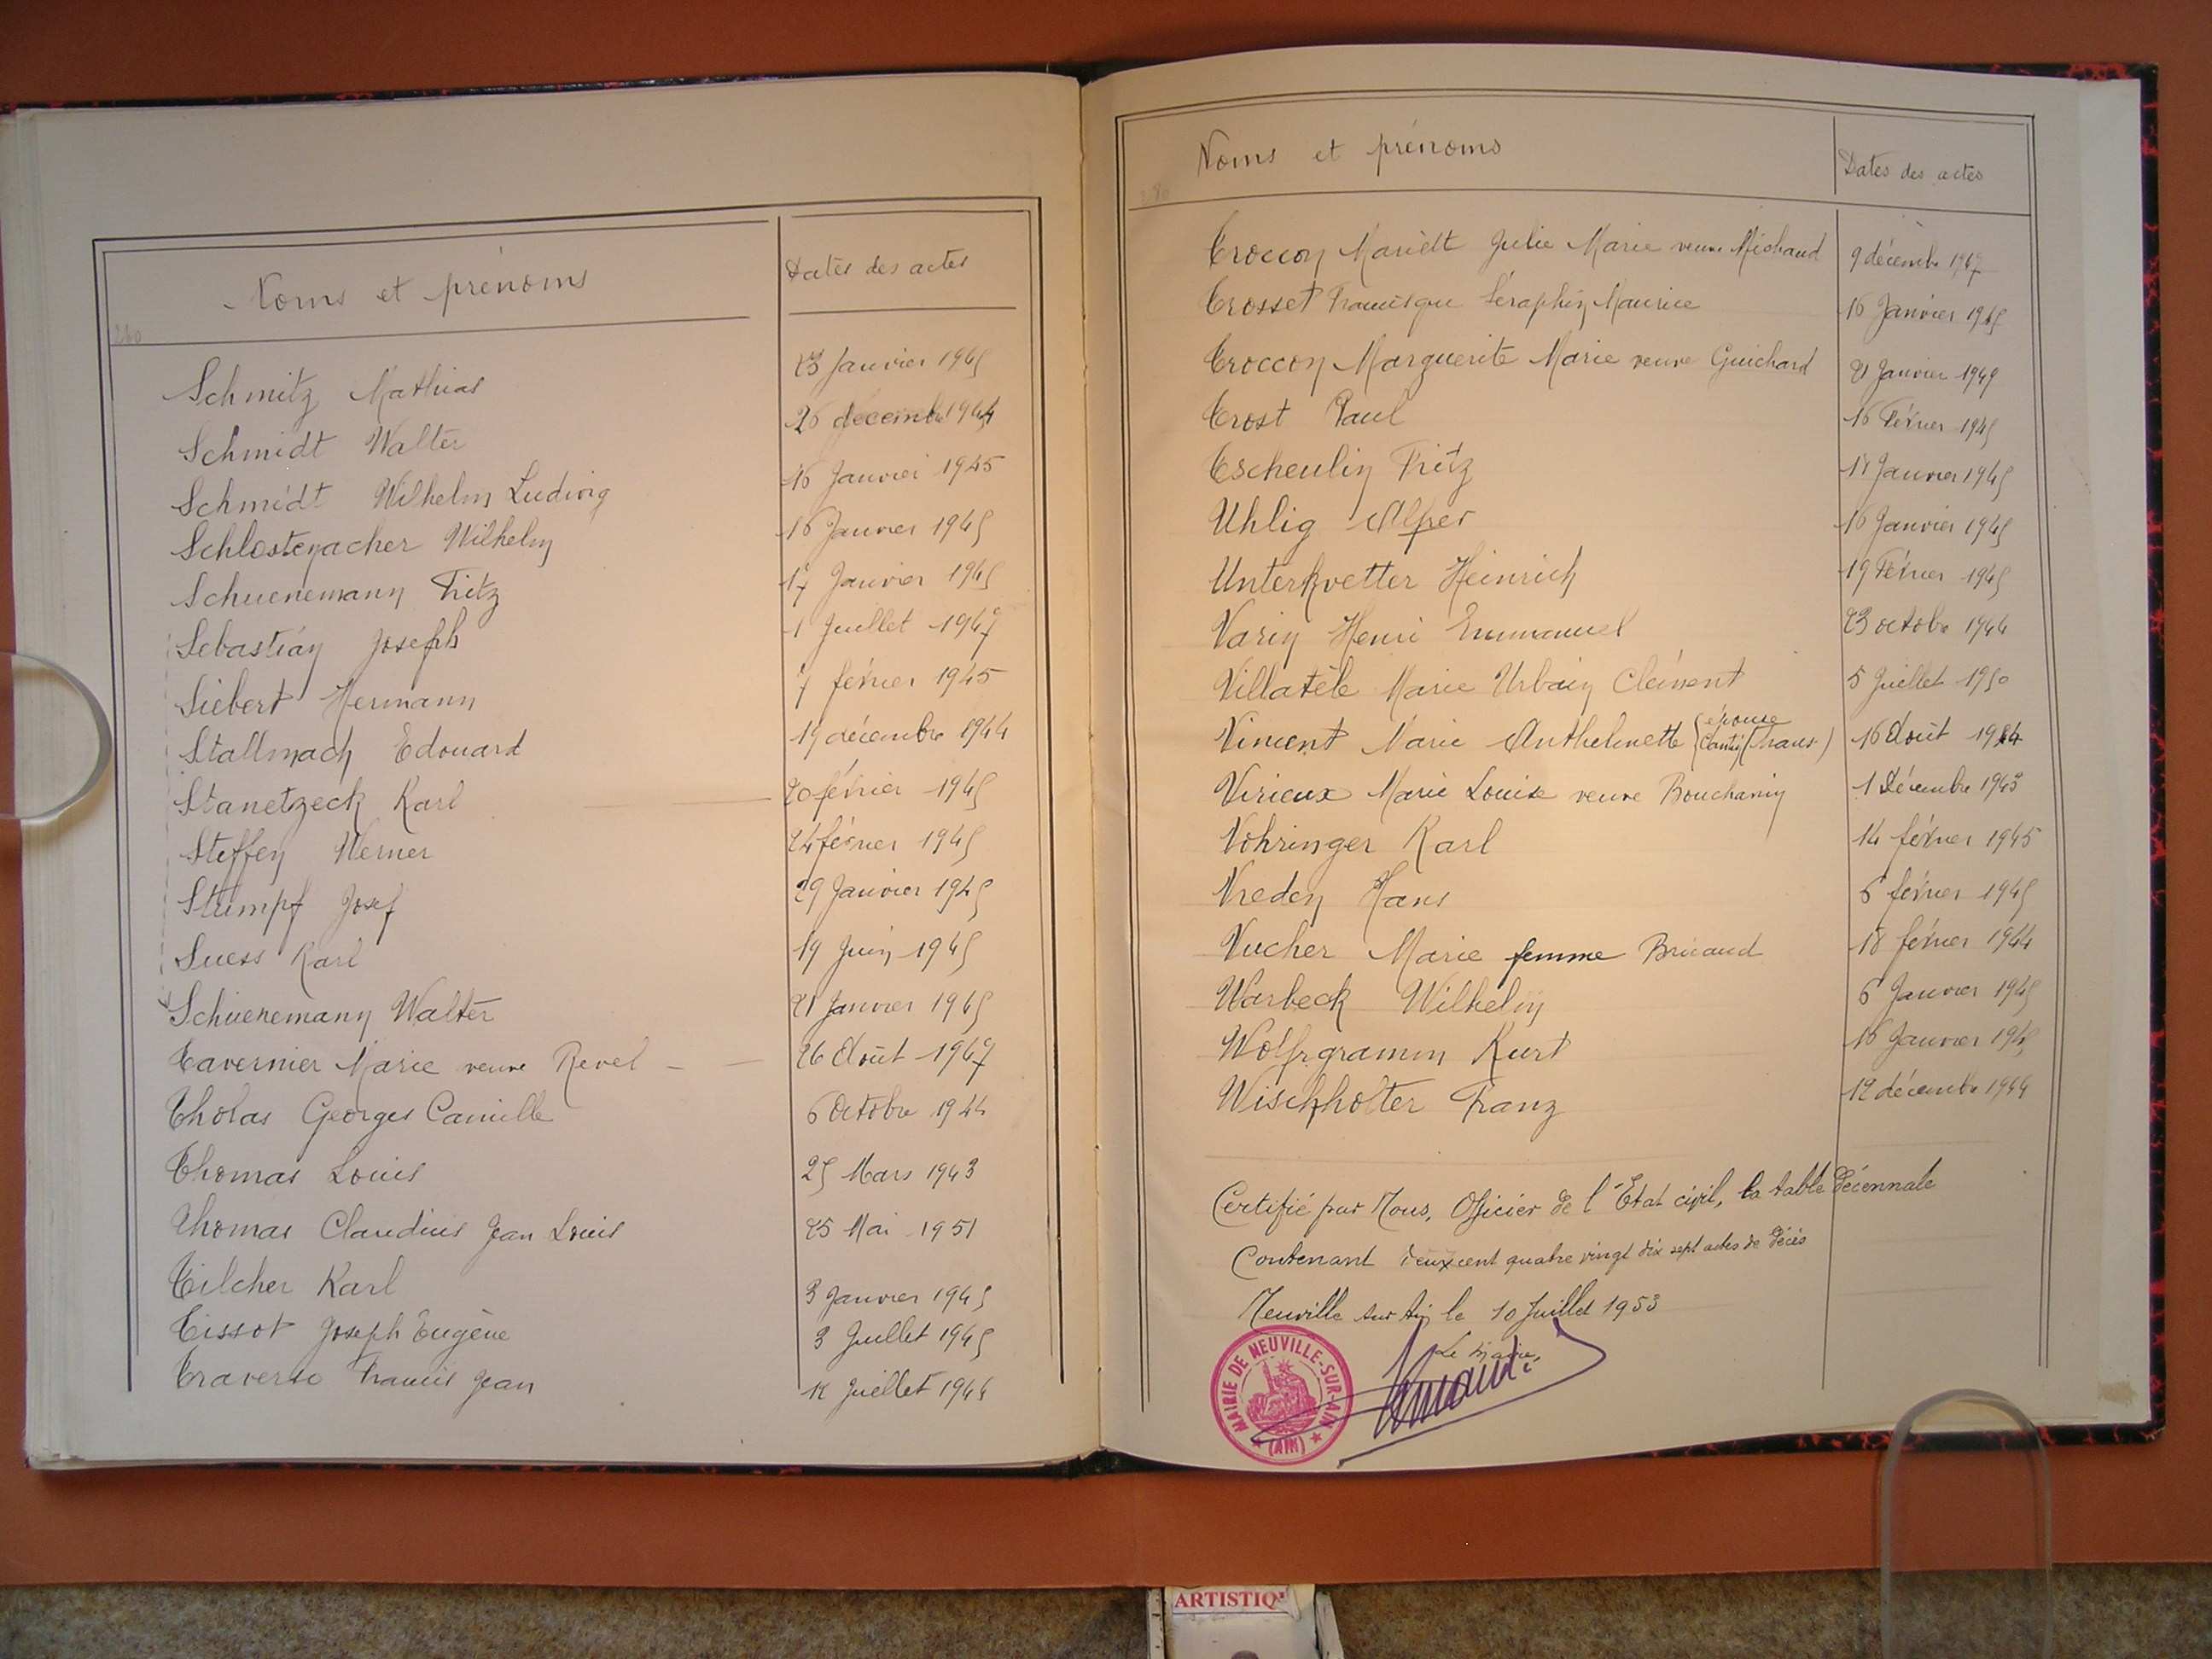 Noms et prénoms Dates des actes
260
Schmitz Mathias 23 Janvier 1945
Schmidt Walter 26 décembre 1944
Schmidt Wilhelm Ludwig 16 Janvier 1945
Schlostenacher Wilhelm 16 Janvier 1945
Schuenemann Fritz 17 Janvier 1945
Sebastian Joseph 1 Juillet 1947
Siebert Hermann 7 février 1945
Stallmach Edouard 19 décembre 1944
Stanetzeck Karl 20 février 1945
Steffen Werner 24 février 1945
Stumpf Josef 29 Janvier 1945
Suess Karl 19 Juin 1945
Schuenemann Walter 21 Janvier 1945
Tavernier Marie veuve Revel 26 Août 1947
Tholas Georges Camille 6 Octobre 1944
Thomas Louis 25 Mars 1943
Thomas Claudius Jean Louis 25 Mai 1951
Tilcher Karl 3 Janvier 1945
Tissot Joseph Eugène 3 Juillet 1945
Traverso Francis Jean 12 Juillet 1944
Noms et prénoms Dates des actes
Troccon Mariett Julie Marie veuve Michaud 9 décembre 1947
Trosset Francisque Séraphin Maurice 16 Janvier 1945
Troccon Marguerite Marie veuve Guichard 21 Janvier 1949
Trost Paul 16 Février 1945
Tscheulin Fritz 18 Janvier 1945
Uhlig Alfrer 16 Janvier 1945
Unterkvetter Heinrich 19 Février 1945
Varin Henri Emmanuel 23 octobre 1944
Villatèle Marie Urbain Clément 5 Juillet 1950
Vincent Marie Anthelmette épouse (trans.) 16 Août 1944
Virieux Marie Louise veuve Bouchamin 1 Décembre 1943
Vohringer Karl 14 février 1945
Vreden Hans 6 février 1945
Vucher Marie femme Bruaud 18 février 1944
Warbeck Wilhelm 6 Janvier 1945
Wolfrgramm Kurt 16 Janvier 1945
Wischholter Franz 12 décembre 1944
Certifié par Nous, Officier de l'Etat civil, la table décennale
Contenant deux cent quatre vingt dix sept actes de décès
Neuville sur Ain le 10 Juillet 1953
Le Maire,
MAIRIE DE NEUVILLE-SUR-AIN (AIN)
ARTISTIQ